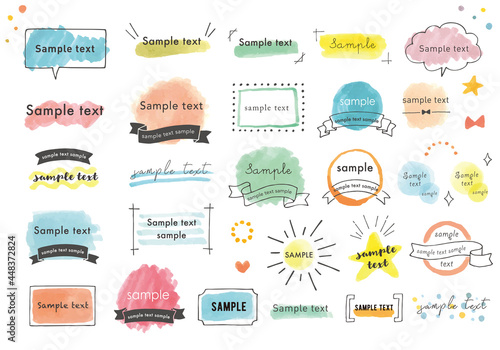 Sample text
Sample text
Sample text
Sample
Sample text
Sample text
sample
sample text sample
sample text
sample
sample text sample
sample text
sample text sample
sample text sample
sample text
Sample
sample text sample
sample
sample text sample
Sample
text
Sample
text
Sample text
sample text sample
Sample text
sample
SAMPLE
sample
text
sample
sample text sample
sample
Sample text
sample
sample text sample
SAMPLE
Sample text
SAMPLE TEXT
sample text
Adobe Stock | #448372824